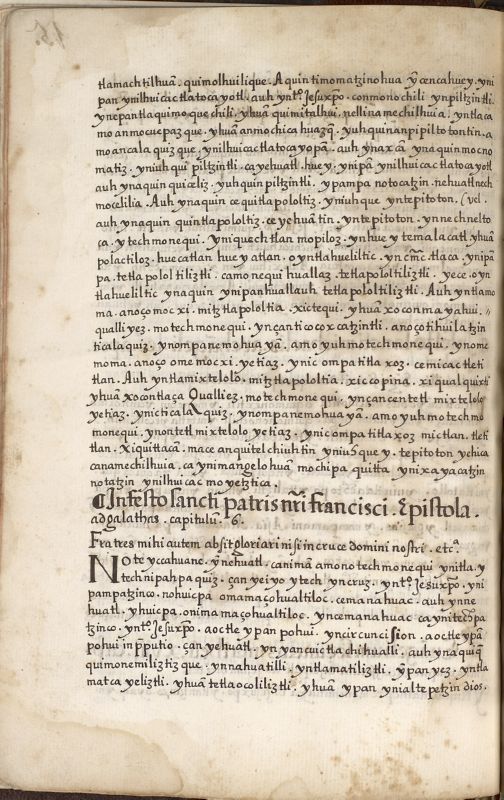 15.
tlamachtilhuā. quimolhuilique. Aquin timomatzinohua ȳ cenca huey. yni
pan ynilhuicac tlatocayotl. auh ynt.º Jesuxp̄o. conmonochili ynpiltzintli.
ynepantla quimoquechili. yhuā quimitalhui. nellinamechilhuia. yntlaca
mo anmocuepazque. yhuā anmochicahuazq̄. yuh quinanpipiltotontin. a
moancalaquizque. ynilhuicac tlatocayopā. auh ynaxcā ynaquin mocno
matiz. yniuhqui piltzintli. ca yehuatl. huey. ynipā ynilhuicac tlatocayotl
auh ynaquin quiceliz. yuhquin piltzintli. ypampa notocatzin. nehuatl nech
mocelilia. Auh ynaquin ce quitlapololtiz. yniuhque yntepitoton. (vel.
auh ynaquin quintlapololtiz. ce yehuātin. yntepitoton. ynnechnelto
ca. ytechmonequi. yniquechtlan mopiloz. ynhuey temalacatl yhuā
polactiloz. huecatlan hueyatlan. oyntlahueliltic. yncm̄c. tlaca. ynipā
pa. tetlapololtiliztli. camonequi huallaz. tetlapololtiliztli. yece. oyn
tlahueliltic ynaquin ynipanhuallauh tetlapololtiliztli. Auh yntlamo
ma. anoço mocxi. mitztlapololtia. xictequi. yhuā xoconmayahui. //
qualli yez. motechmonequi. ynçan ticocoxcatzintli. anoço tihuilatzin
ticalaquiz. ynompa nemohuayā. amo yuh motechmonequi. ynome
moma. anoço omemocxi. yetiaz. ynic ompa titlaxoz. cemicac tleti
tlan. Auh yntla mixtelolō. mitztlapololtia. xiccopina. xiqualquixti
yhuā xocontlaça Qualli ez. motechmonequi. ynçan centetl mixtelolo
yetiaz. ynic ticalaquiz. ynompa nemohuayā. amo yuh motechmo
monequi. ynontetl mixtelolo yetiaz. ynic ompa titlaxoz mictlan. tleti
tlan. Xiquittacā. macean quitelchiuhtin yniusque y. tepitoton ychica
canamechilhuia. ca ynimangelohuā mochipa quitta ynixayacatzin
notatzin ynilhuicac moyetztica.
¶ In festo sancti patris nr̄i francisci. Epistola.
ad galathas. capitulū. 6.
Fratres mihi autem absit gloriari nisi in cruce domini nostri. etc.ª
Noteyccahuane. ȳnehuatl. canimā amo notechmonequi ynitla. y
technipahpaquiz. çan yeiyo ytech yncruz. ynt.º Jesuxp̄o. yni
pampatzinco. nohuicpa omamaçohualtiloc. cemanahuac. auh ynne
huatl. yhuicpa. onimamaçohualtiloc. yncemanahuac ca ynitechpa
tzinco. ynt.º Jesuxp̄o. aoctle ypan pohui. yncircuncision. aoctle ypā
pohui inp̄putio. çan yehuatl. yn yancuic tlachihualli. auh ynaquiq̄
quimonemiliztizque. ynnahuatilli. yntlamatiliztli. ȳpan yez. yntla
matcayeliztli. yhuā tetlaocoliliztli. yhuā ypan ynialtepetzin dios.